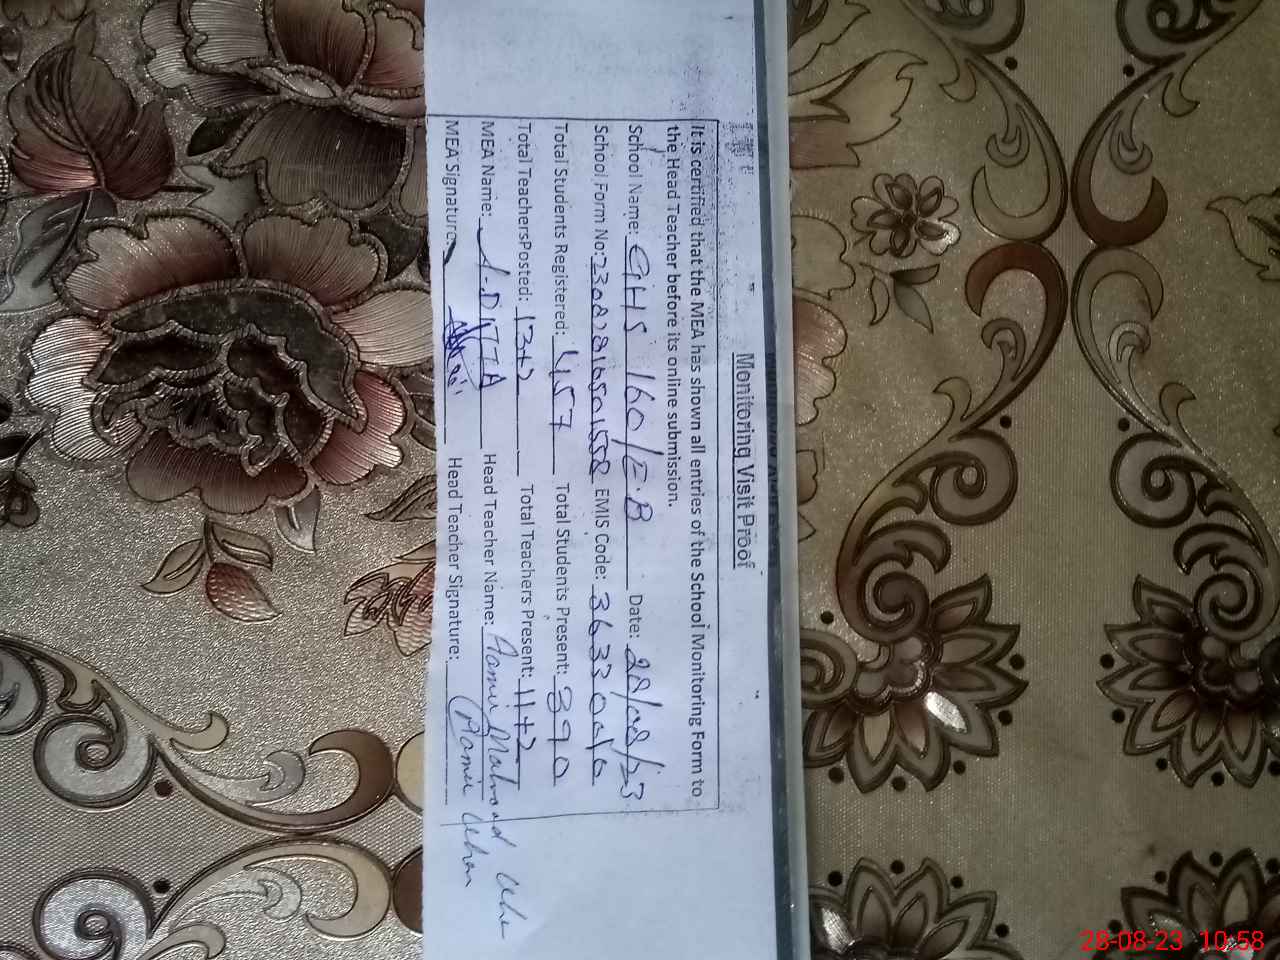 Monitoring Visit Proof
It is certified that the MEA has shown all entries of the School Monitoring Form to
the Head Teacher before its online submission.
School Name: GHS 160/E.B Date: 28/08/23
School Form No: EMIS Code:
Total Students Registered: 457 Total Students Present: 390
Total TeachersPosted: 13+2 Total Teachers Present: 11+2
MEA Name: Head Teacher Name: Aamir Mahmood
MEA Signature: Head Teacher Signature: Aamir
28-08-23 10:58